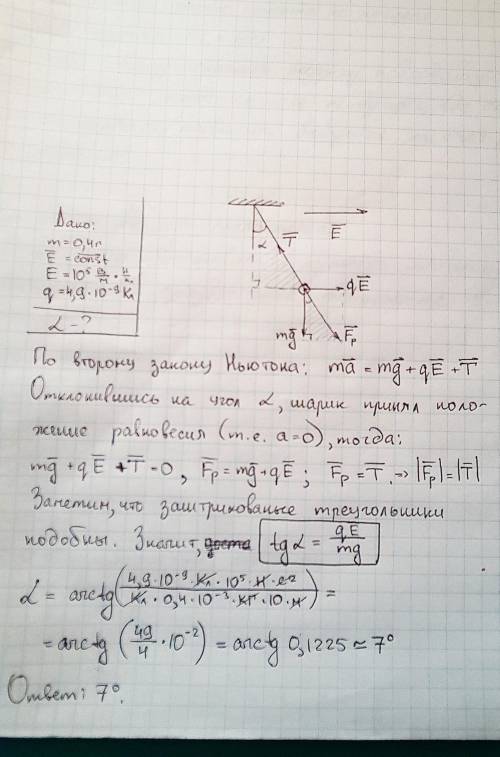 Дано:
m = 0,4 г
E⃗ = const
E = 10⁵ В/м · Н/Кл
q = 4,9·10⁻⁹ Кл
α - ?
α
T⃗
E⃗
qE⃗
mg⃗
F⃗р
По второму закону Ньютона: ma⃗ = mg⃗ + qE⃗ + T⃗
Отклонившись на угол α, шарик принял поло-
жение равновесия (т.е. a=0), тогда:
mg⃗ + qE⃗ + T⃗ = 0, F⃗р = mg⃗ + qE⃗; F⃗р = T⃗. → |F⃗р| = |T⃗|
Заметим, что заштрихованые треугольники
подобны. Значит, tg α = qE/mg
α = arctg (4,9·10⁻⁹·Кл·10⁵·Н·с²/Кл·0,4·10⁻³·кг·10·м) =
= arctg (49/4 · 10⁻²) = arctg 0,1225 ≃ 7°
Ответ: 7°.